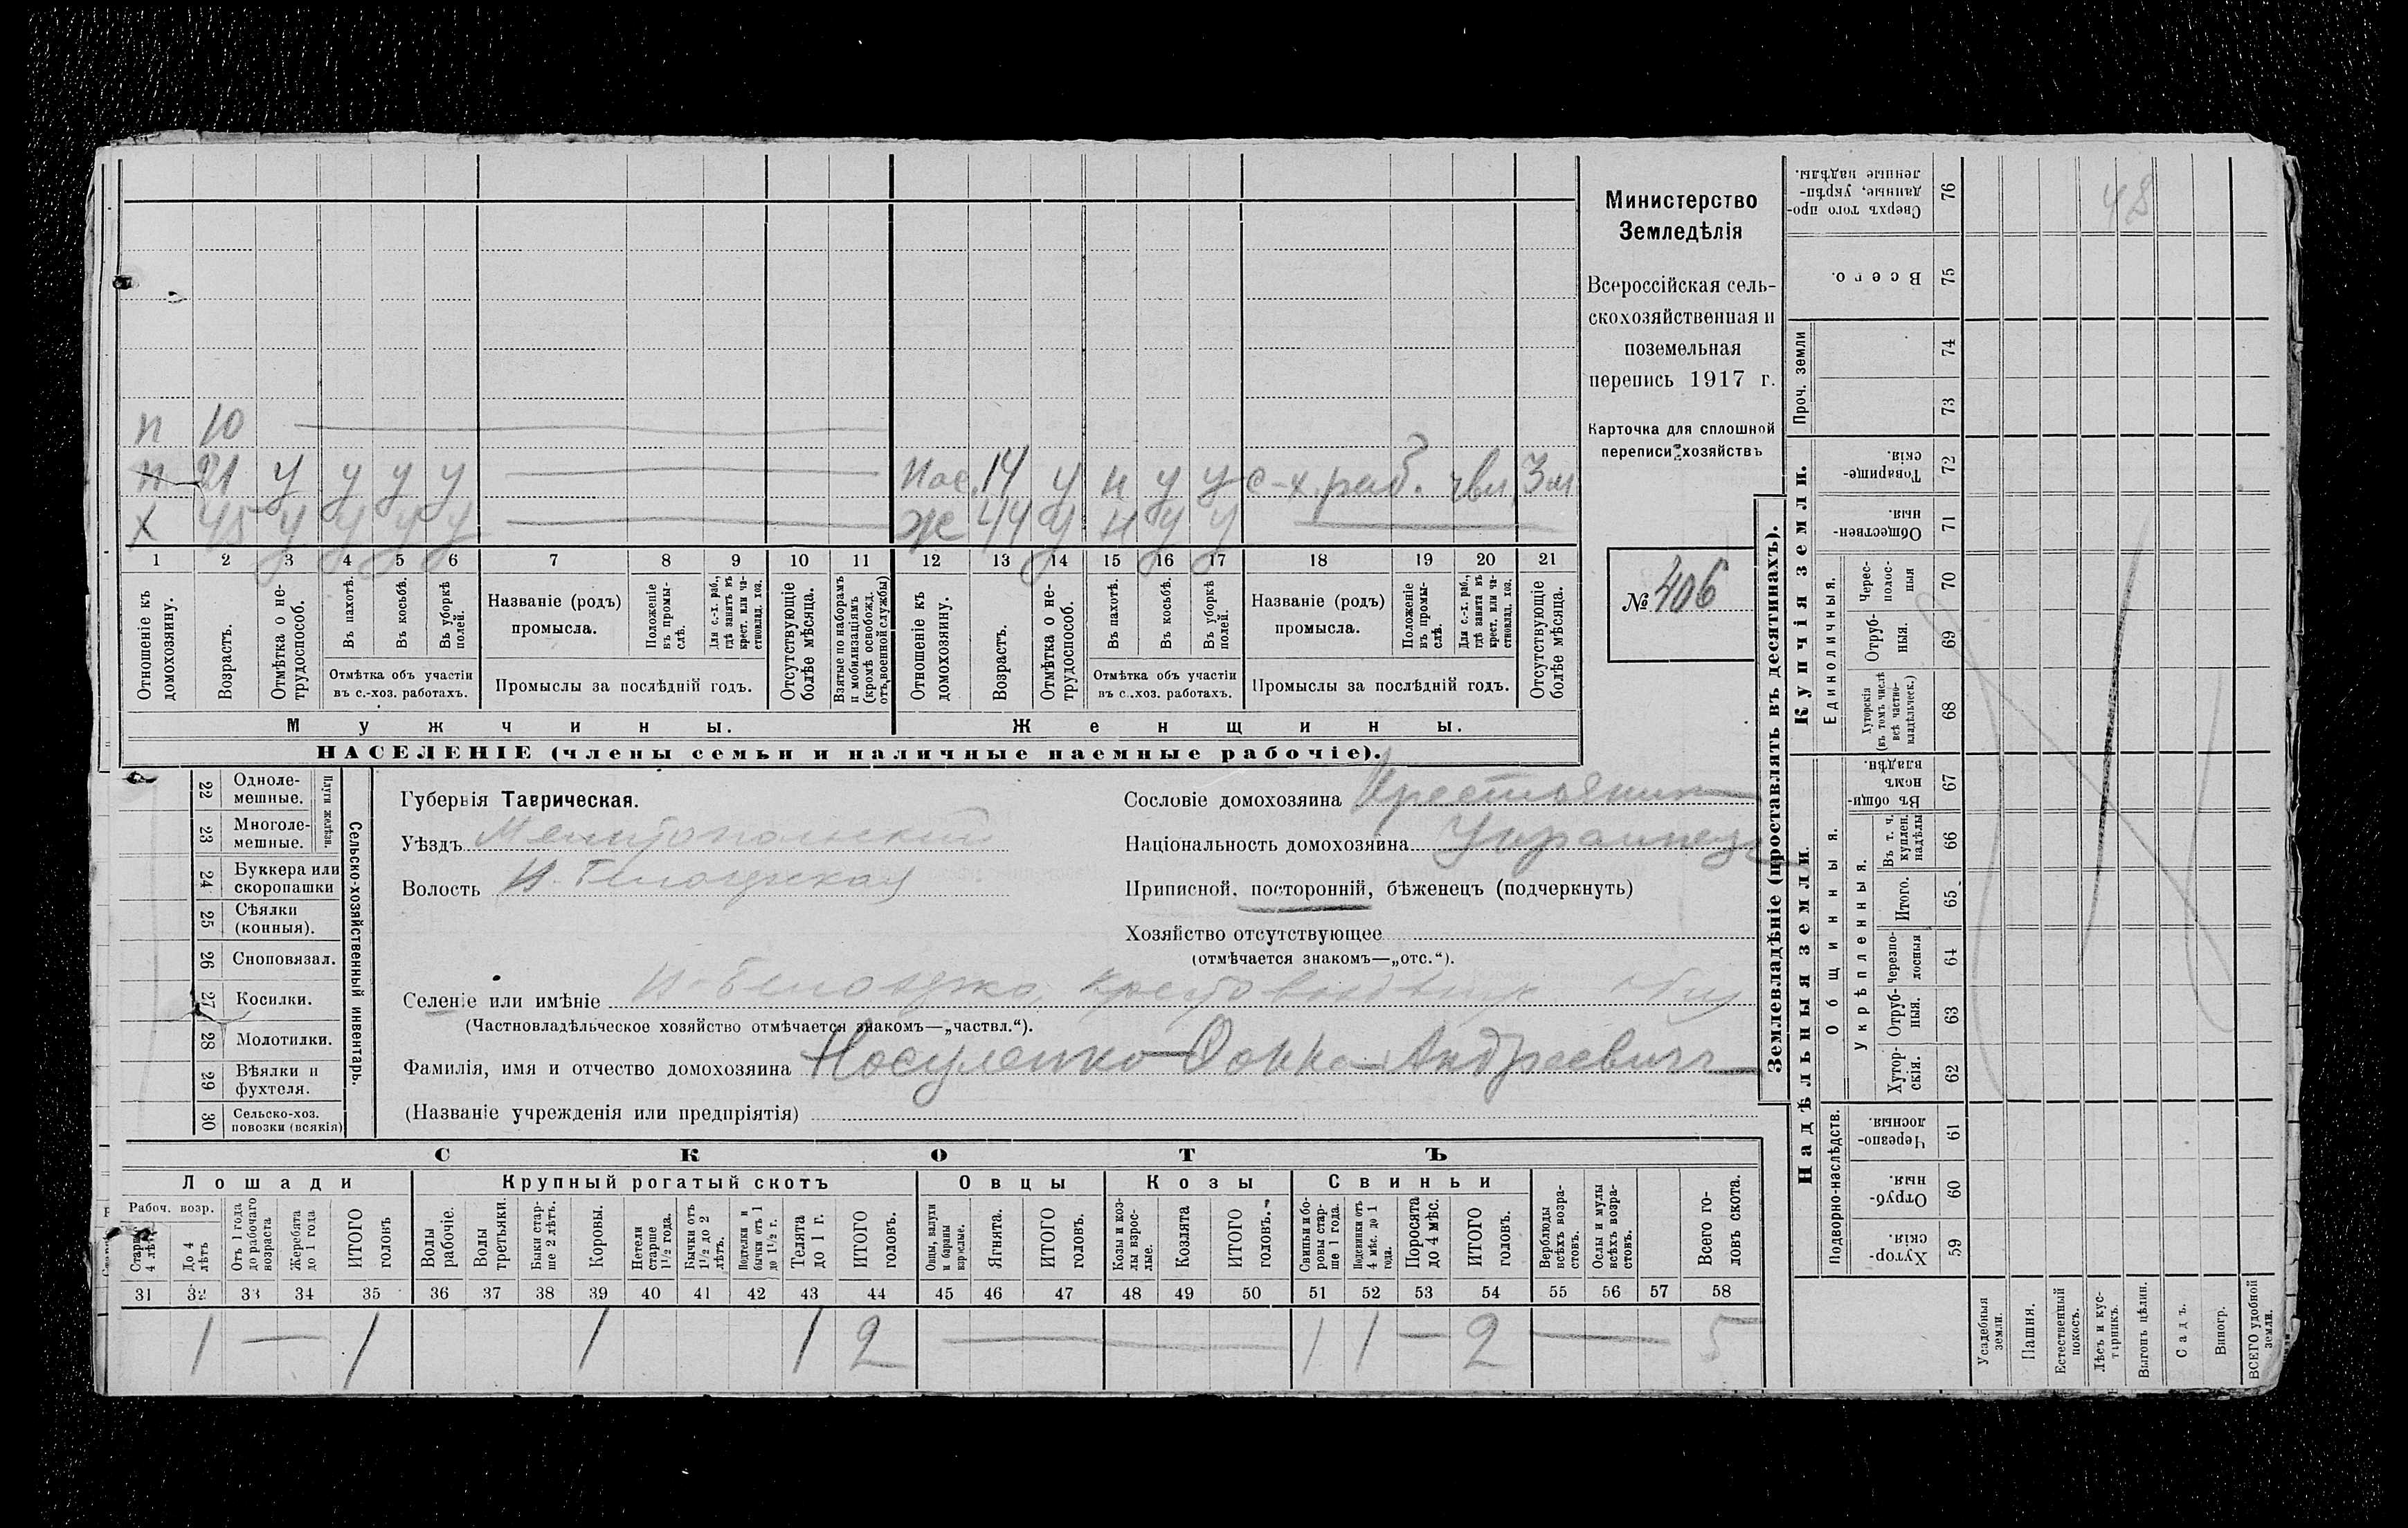 Министерство
Земледѣлія
Всероссійская сель-
скохозяйственная и
поземельная
перепись 1917 г.
Карточка для сплошной
переписи хозяйствъ
№ 406
п 10
п 21 у у у у
х 45 у у у у
14 у н у у с-х. раб. 3 м
Ж 44 у н у у
1 2 3 4 5 6 7 8 9 10 11 12 13 14 15 16 17 18 19 20 21
Отношеніе къ домохозяину.
Возрастъ.
Отмѣтка о не-трудоспособ.
Въ пахотѣ.
Въ косьбѣ.
Въ уборкѣ полей.
Отмѣтка объ участіи въ с.-хоз. работахъ.
Названіе (родъ) промысла.
Положеніе въ промы-слѣ.
Для с.-х. раб., гдѣ занятъ въ крест. или ча-стновлад. хоз.
Промыслы за послѣдній годъ.
Отсутствующіе болѣе мѣсяца.
Взятые по наборамъ и мобилизаціямъ (кромѣ освобожд. отъ военной службы)
Отношеніе къ домохозяину.
Возрастъ.
Отмѣтка о не-трудоспособ.
Въ пахотѣ.
Въ косьбѣ.
Въ уборкѣ полей.
Отмѣтка объ участіи въ с.-хоз. работахъ.
Названіе (родъ) промысла.
Положеніе въ промы-слѣ.
Для с.-х. раб., гдѣ занята въ крест. или ча-стновлад. хоз.
Промыслы за послѣдній годъ.
Отсутствующіе болѣе мѣсяца.
Мужчины. Женщины.
НАСЕЛЕНІЕ (члены семьи и наличные наемные рабочіе).
22 Одноле-мешные.
23 Многоле-мешные.
Плуги желѣзн.
24 Буккера или скоропашки
25 Сѣялки (конныя).
26 Сноповязал.
27 Косилки.
28 Молотилки.
29 Вѣялки и фухтеля.
30 Сельско-хоз. повозки (всякія)
Сельско-хозяйственный инвентарь.
Губернія Таврическая.
Уѣздъ Мелитопольский
Волость
Сословіе домохозяина Крестьянин
Національность домохозяина Украинец
Приписной, посторонній, бѣженецъ (подчеркнуть)
Хозяйство отсутствующее
(отмѣчается знакомъ—„отс.“).
Селеніе или имѣніе
(Частновладѣльческое хозяйство отмѣчается знакомъ—„частвл.“).
Фамилія, имя и отчество домохозяина Носуленко Андреевич
(Названіе учрежденія или предпріятія)
СКОТЪ
Лошади Крупный рогатый скотъ Овцы Козы Свиньи
Рабоч. возр.
Старше 4 лѣтъ
До 4 лѣтъ
Отъ 1 года до рабочаго возраста
Жеребята до 1 года
ИТОГО головъ
Волы рабочіе.
Волы третьяки.
Быки стар-ше 2 лѣтъ.
Коровы.
Нетели старше 1½ года.
Бычки отъ 1½ до 2 лѣтъ.
Подтелки и бычки отъ 1 до 1½ г.
Телята до 1 г.
ИТОГО головъ.
Овцы, валухи и бараны взрослые.
Ягнята.
ИТОГО головъ.
Козы и коз-лы взрос-лые.
Козлята
ИТОГО головъ.
Свиньи и бо-ровы стар-ше 1 года.
Подсвинки отъ 4 мѣс. до 1 года.
Поросята до 4 мѣс.
ИТОГО головъ.
Верблюды всѣхъ возра-стовъ.
Ослы и мулы всѣхъ возра-стовъ.
Всего го-ловъ скота.
31 32 33 34 35 36 37 38 39 40 41 42 43 44 45 46 47 48 49 50 51 52 53 54 55 56 57 58
1 — 1 1 1 2 — 1 1 — 2 — 5
Землевладѣніе (проставлять въ десятинахъ).
Надѣльныя земли. Купчія земли.
Подворно-наслѣдств.
Общинныя.
Укрѣпленныя.
Единоличныя.
Проч. земли
59 Хутор-скія.
60 Отруб-ныя.
61 Черезпо-лосныя.
62 Хутор-скія.
63 Отруб-ныя.
64 Черезпо-лосныя
65 Итого.
66 Въ т. ч. куплен. надѣлы
67 Въ общи-номъ владѣн.
68 Хуторскія (въ томъ числѣ всѣ частно-владѣльческ.)
69 Отруб-ныя.
70 Черес-полос-ныя
71 Обществен-ныя.
72 Товарище-скія.
73
74
75 Всего.
76 Сверхъ того про-данные, укрѣп-ленные надѣлы.
48
Усадебныя земли.
Пашня.
Естественный покосъ.
Лѣсъ и кус-тарникъ.
Выгонъ цѣлин.
Садъ.
Виногр.
ВСЕГО удобной земли.